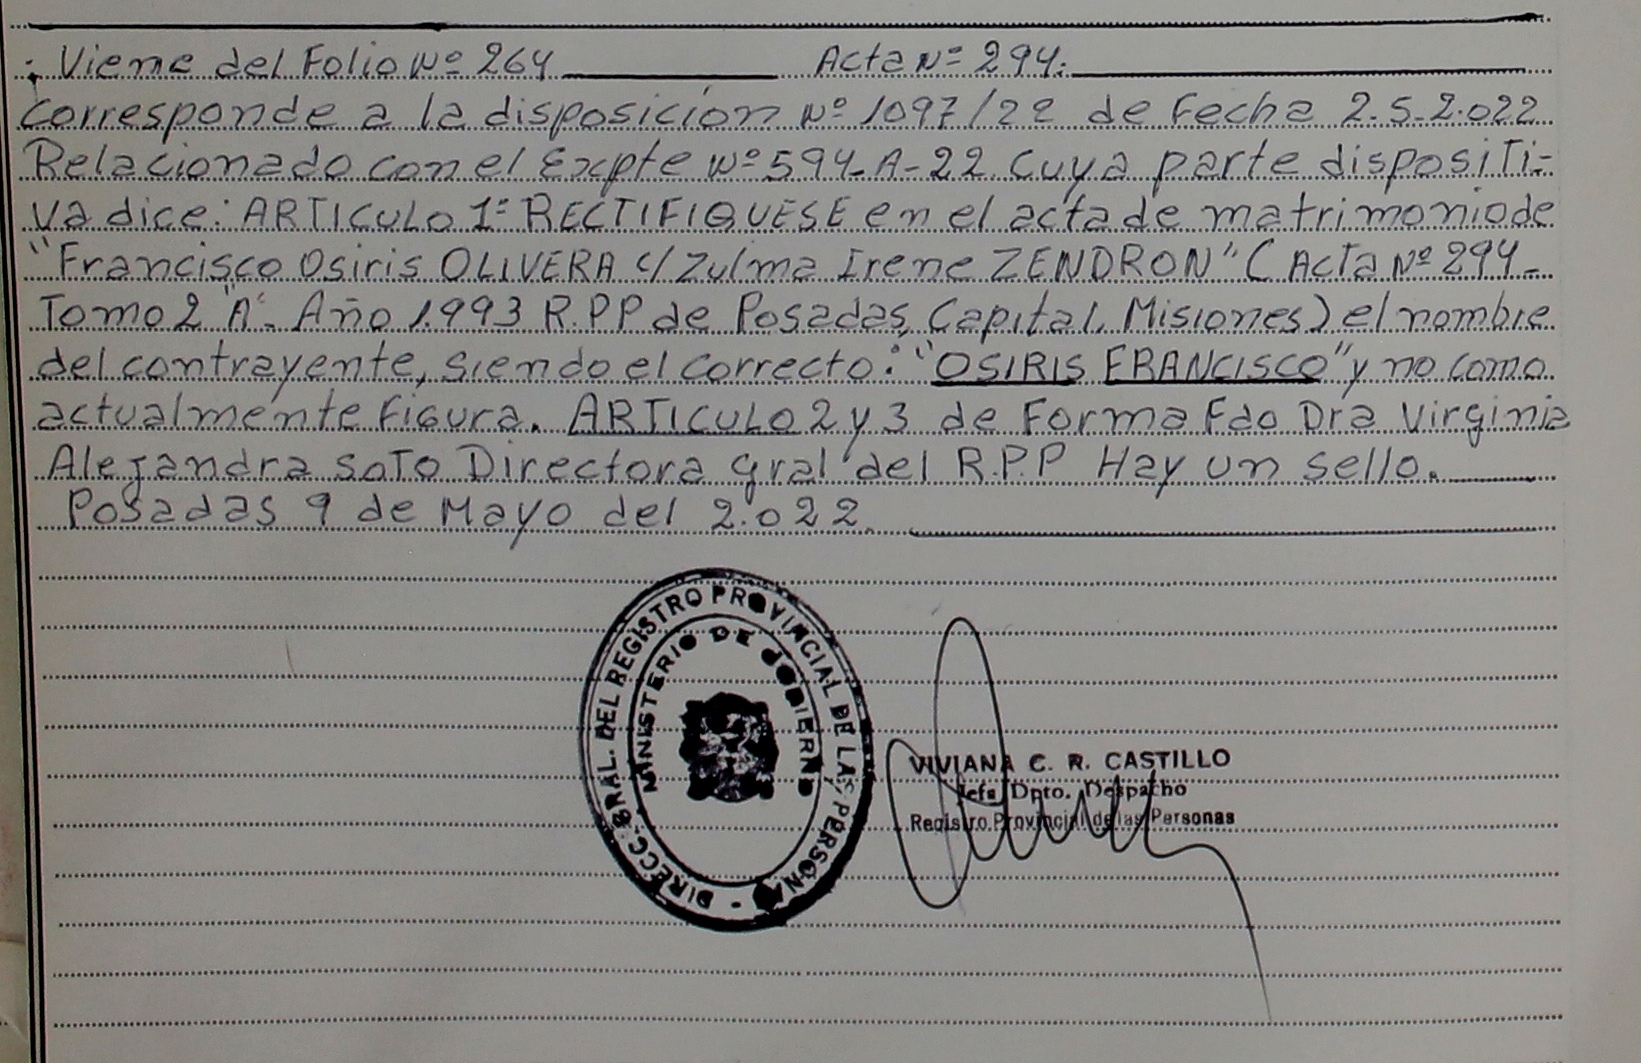 : Viene del Folio Nº 264 Acta Nº 294.
Corresponde a la disposicion Nº 1097/22 de Fecha 2.5.2.022
Relacionado con el Expte Nº 594-A-22 Cuya parte dispositi-
va dice: ARTICULO 1º RECTIFIQUESE en el acta de matrimonio de
"Francisco Osiris OLIVERA c/ Zulma Irene ZENDRON" (Acta Nº 294-
Tomo 2 "A". Año 1.993 R.P.P de Posadas, Capital, Misiones) el nombre
del contrayente, siendo el correcto: "OSIRIS FRANCISCO" y no como
actualmente Figura. ARTICULO 2 y 3 de Forma Fdo Dra Virginia
Alejandra Soto Directora gral del R.P.P Hay un sello.
Posadas 9 de Mayo del 2.022.
DIRECC. GRAL. DEL REGISTRO PROVINCIAL DE LAS PERSONAS -
MINISTERIO DE GOBIERNO
VIVIANA C. R. CASTILLO
Jefa Dpto. Despacho
Registro Provincial de las Personas